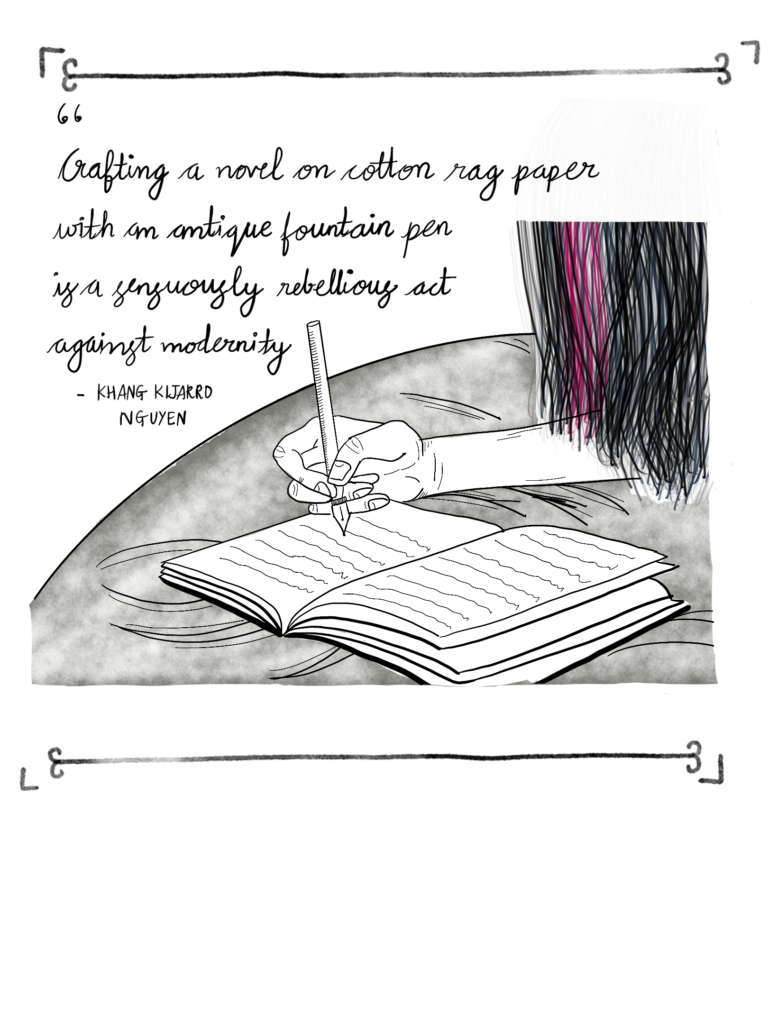 “
Crafting a novel on cotton rag paper
with an antique fountain pen
is a sensuously rebellious act
against modernity
- KHANG KIJARRO
NGUYEN